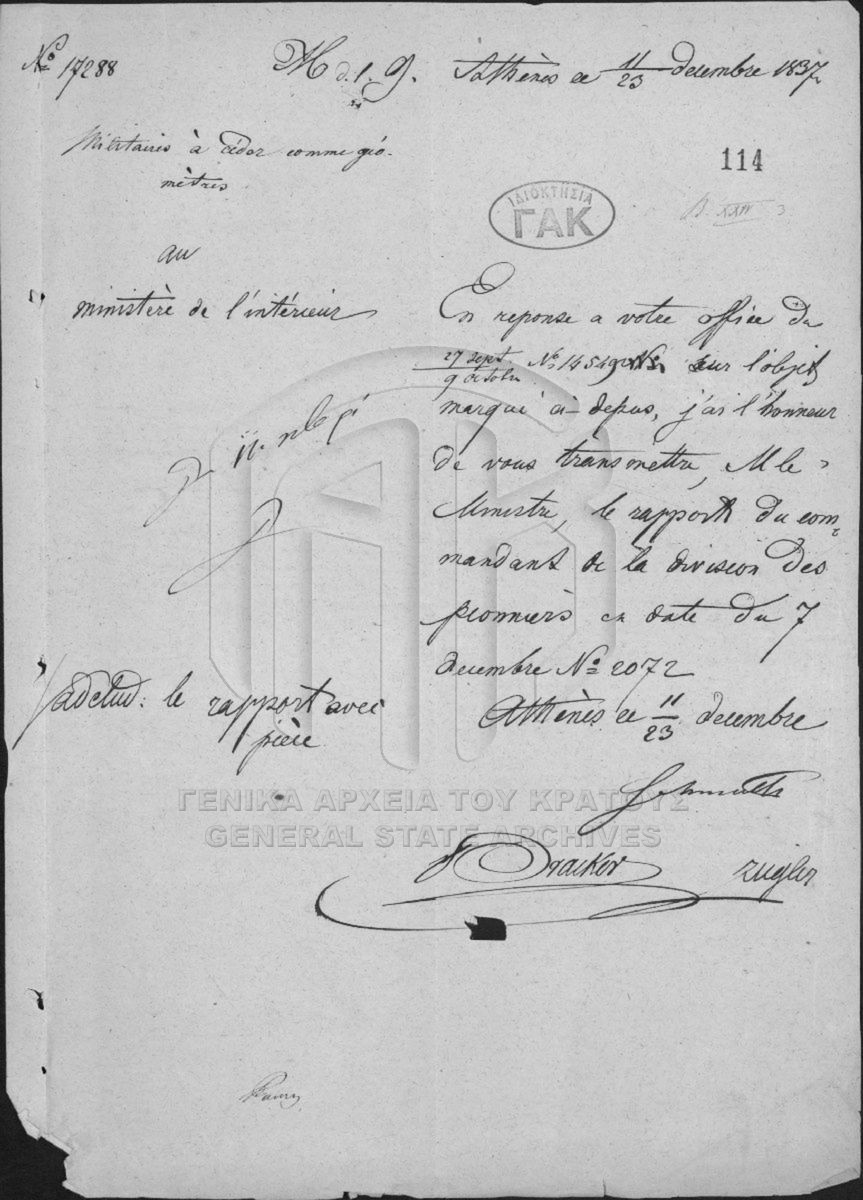 No 17288
M d. l. g. Athènes ce 11/23 decembre 1837
Militaires à céder comme géo-
mètres
114
ΙΔΙΟΚΤΗΣΙΑ
ΓΑΚ
au
ministère de l'intérieur
En reponse a votre office du
27 sept / 9 octobre No 14549 sur l'objet
marqué ci-depus, j'ai l'honneur
de vous transmettre, M le
Ministre, le rapport du com-
mandant de la division des
pionniers en date du 7
decembre No 2072
Athènes ce 11/23 decembre
le rapport avec
pièce
ΓΕΝΙΚΑ ΑΡΧΕΙΑ ΤΟΥ ΚΡΑΤΟΥΣ
GENERAL STATE ARCHIVES